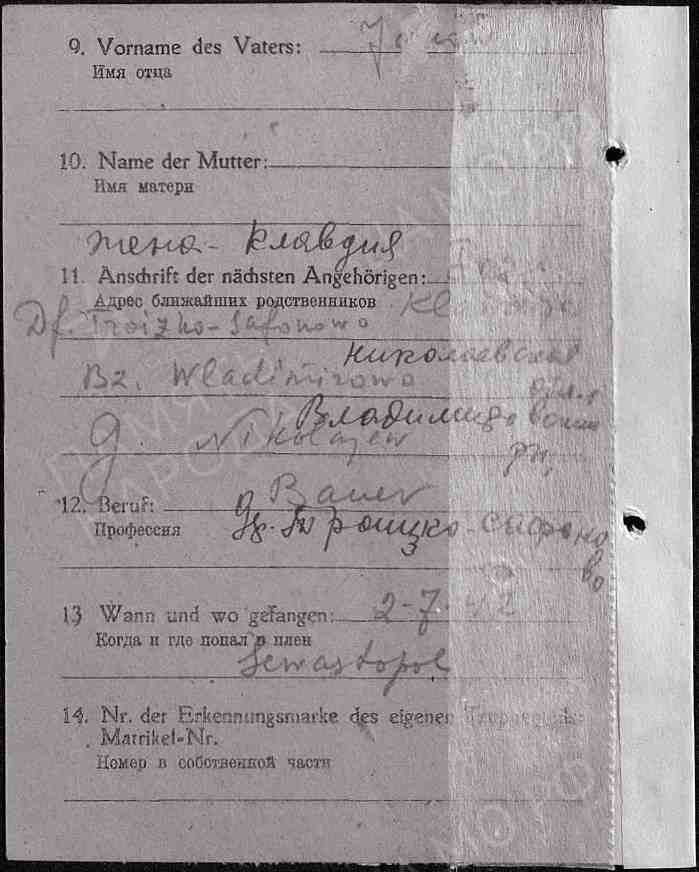 9. Vorname des Vaters:
Имя отца
10. Name der Mutter:
Имя матери
жена - Клавдия
11. Anschrift der nächsten Angehörigen:
Адрес ближайших родственников
Df. Troizko-Safonowo
Николаевская
Bz. Wladimirowo
Владимировский
g. Nikolajew
рн,
12. Beruf: Bauer
Профессия
др. Троицко-сафоно
во
13 Wann und wo gefangen: 2-7-42
Когда и где попал в плен
Sewastopol
14. Nr. der Erkennungsmarke des eigenen
Matrikel-Nr.
Номер в собственной части